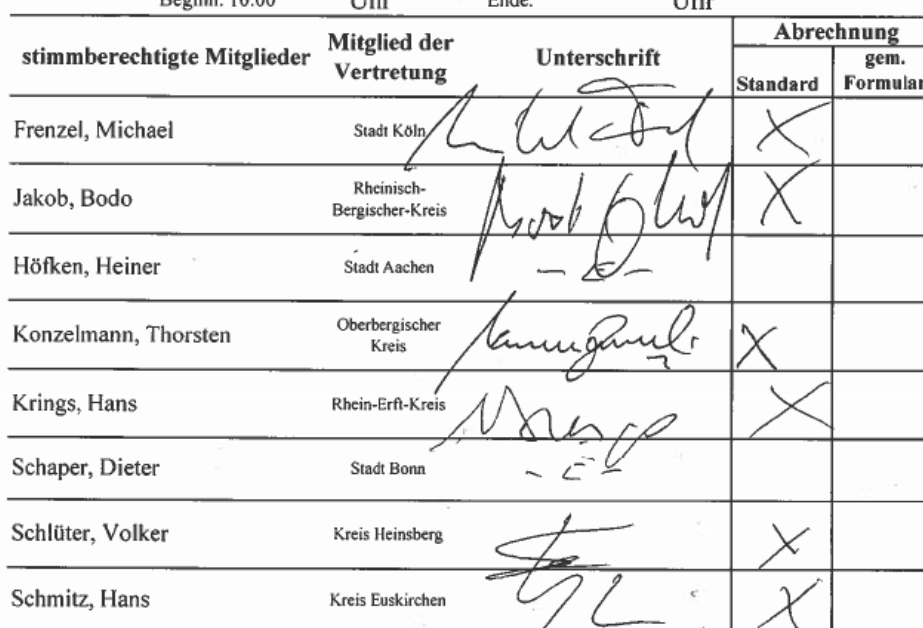 Beginn: 10.00 Uhr Ende: Uhr
stimmberechtigte Mitglieder Mitglied der Vertretung Unterschrift Abrechnung
Standard gem. Formular
Frenzel, Michael Stadt Köln X
Jakob, Bodo Rheinisch-Bergischer-Kreis X
Höfken, Heiner Stadt Aachen - E -
Konzelmann, Thorsten Oberbergischer Kreis X
Krings, Hans Rhein-Erft-Kreis X
Schaper, Dieter Stadt Bonn - E -
Schlüter, Volker Kreis Heinsberg X
Schmitz, Hans Kreis Euskirchen X